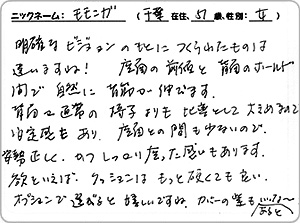 ニックネーム: モモンガ (千葉 在住, 51 歳、性別: 女)
明確な ビジョン のもとに つくられたものは
違いますね! 座面の前傾と 背面のホールド
間で 自然に 背筋が 伸びます。
背面は 通常の 椅子よりも 比率として 大きめなので
安定感もあり、座面との間も少ないので、
姿勢 正しく、かつ しっかり座った感いもあります。
欲といえば クッションは もっと硬くても 良い、
オプションで 選べると 嬉しいですね。カバーの生も
いったりあると